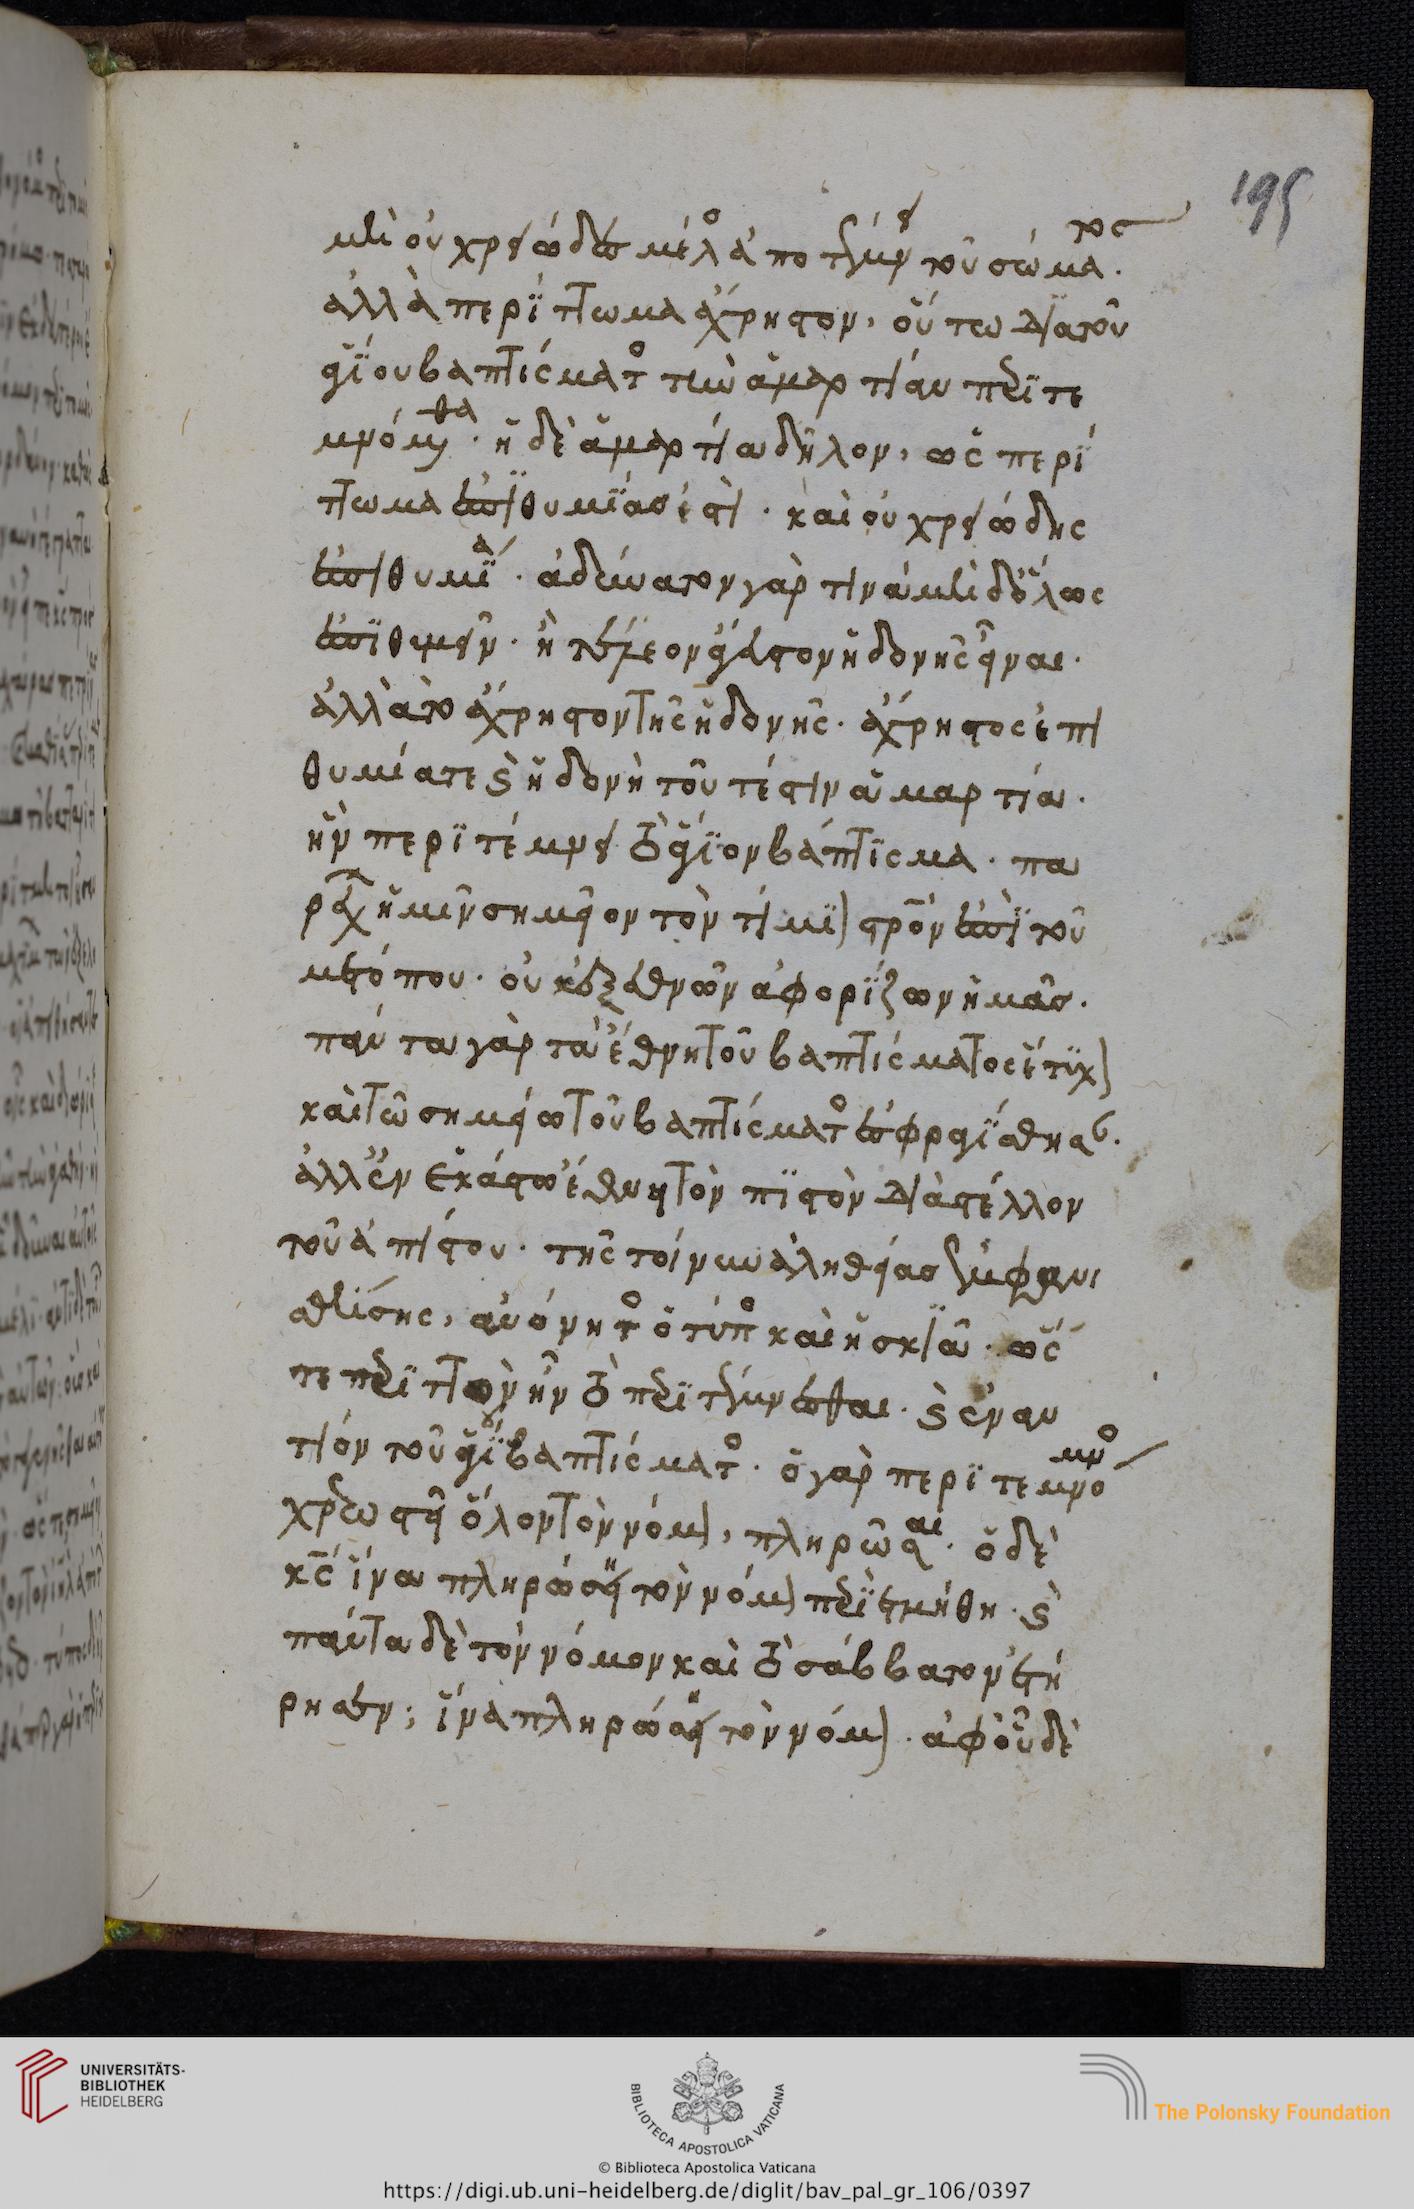 195
μὴ οὐ χρειῶδες μέλος ἀποτέμνει τοῦ σώματος.
ἀλλὰ περίττωμα ἄχρηστον, οὕτω διὰ τοῦ
ἁγίου βαπτίσματος τὴν ἁμαρτίαν περιτε
μνόμεθα. ἡ δὲ ἁμαρτία δῆλον, ὡς περί
ττωμα ἐπιθυμίας ἐστι. καὶ οὐ χρειώδης
ἐπιθυμία. ἀδύνατον γὰρ τινὰ μὴ δὅλως
ἐπιθυμεῖν. ἢ ἄγευστον ἡδονῆς εἶναι.
ἀλλὰ τὸ ἄχρηστον τῆς ἡδονῆς. ἄχρηστος ἐπι
θυμία τε καὶ ἡδονὴ τοῦτέστιν ἁμαρτία.
ἣν περιτέμνει τὸ ἅγιον βάπτισμα. πα
ρέχει ἡμῖν σημεῖον τὸν τίμιον σταυρὸν ἐπὶ τοῦ
μετόπου. οὐκ ἐξ ἐθνῶν ἀφορίζων ἡμᾶς.
πάντα γὰρ τὰ ἔθνη τοῦ βαπτίσματος ἔτυχον
καὶ τῷ σημείω τοῦ βαπτίσματος ἐσφραγίσθησαν.
ἀλλ' ἐν ἑκάστω ἔθνη τὸν πιστὸν διαστέλλον
τοῦ ἀπίστου. τῆς τοίνυν ἀληθείας ἐμφανι
σθείσης, ἀνόνητος ὁ τύπος καὶ ἡ σκιά. ὥς
τε περιττὸν ἦν τὸ περιτέμνεσθαι. καὶ ἐναν
τίον τοῦ ἁγίου βαπτίσματος. ὁ γὰρ περιτεμνόμενος
χρεωστεῖ ὅλον τὸν νόμον, πληρῶσαι. ὁ δὲ
κς ἵνα πληρώση τὸν νόμον περιετμήθη. καὶ
πάντα δὲ τὸν νόμον καὶ τὸ σάββατον ἐτή
ρησεν; ἵνα πληρώση τὸν νόμον. ἀφοῦ δὲ
UNIVERSITÄTS-
BIBLIOTHEK
HEIDELBERG
BIBLIOTECA APOSTOLICA VATICANA
The Polonsky Foundation
© Biblioteca Apostolica Vaticana
https://digi.ub.uni-heidelberg.de/diglit/bav_pal_gr_106/0397